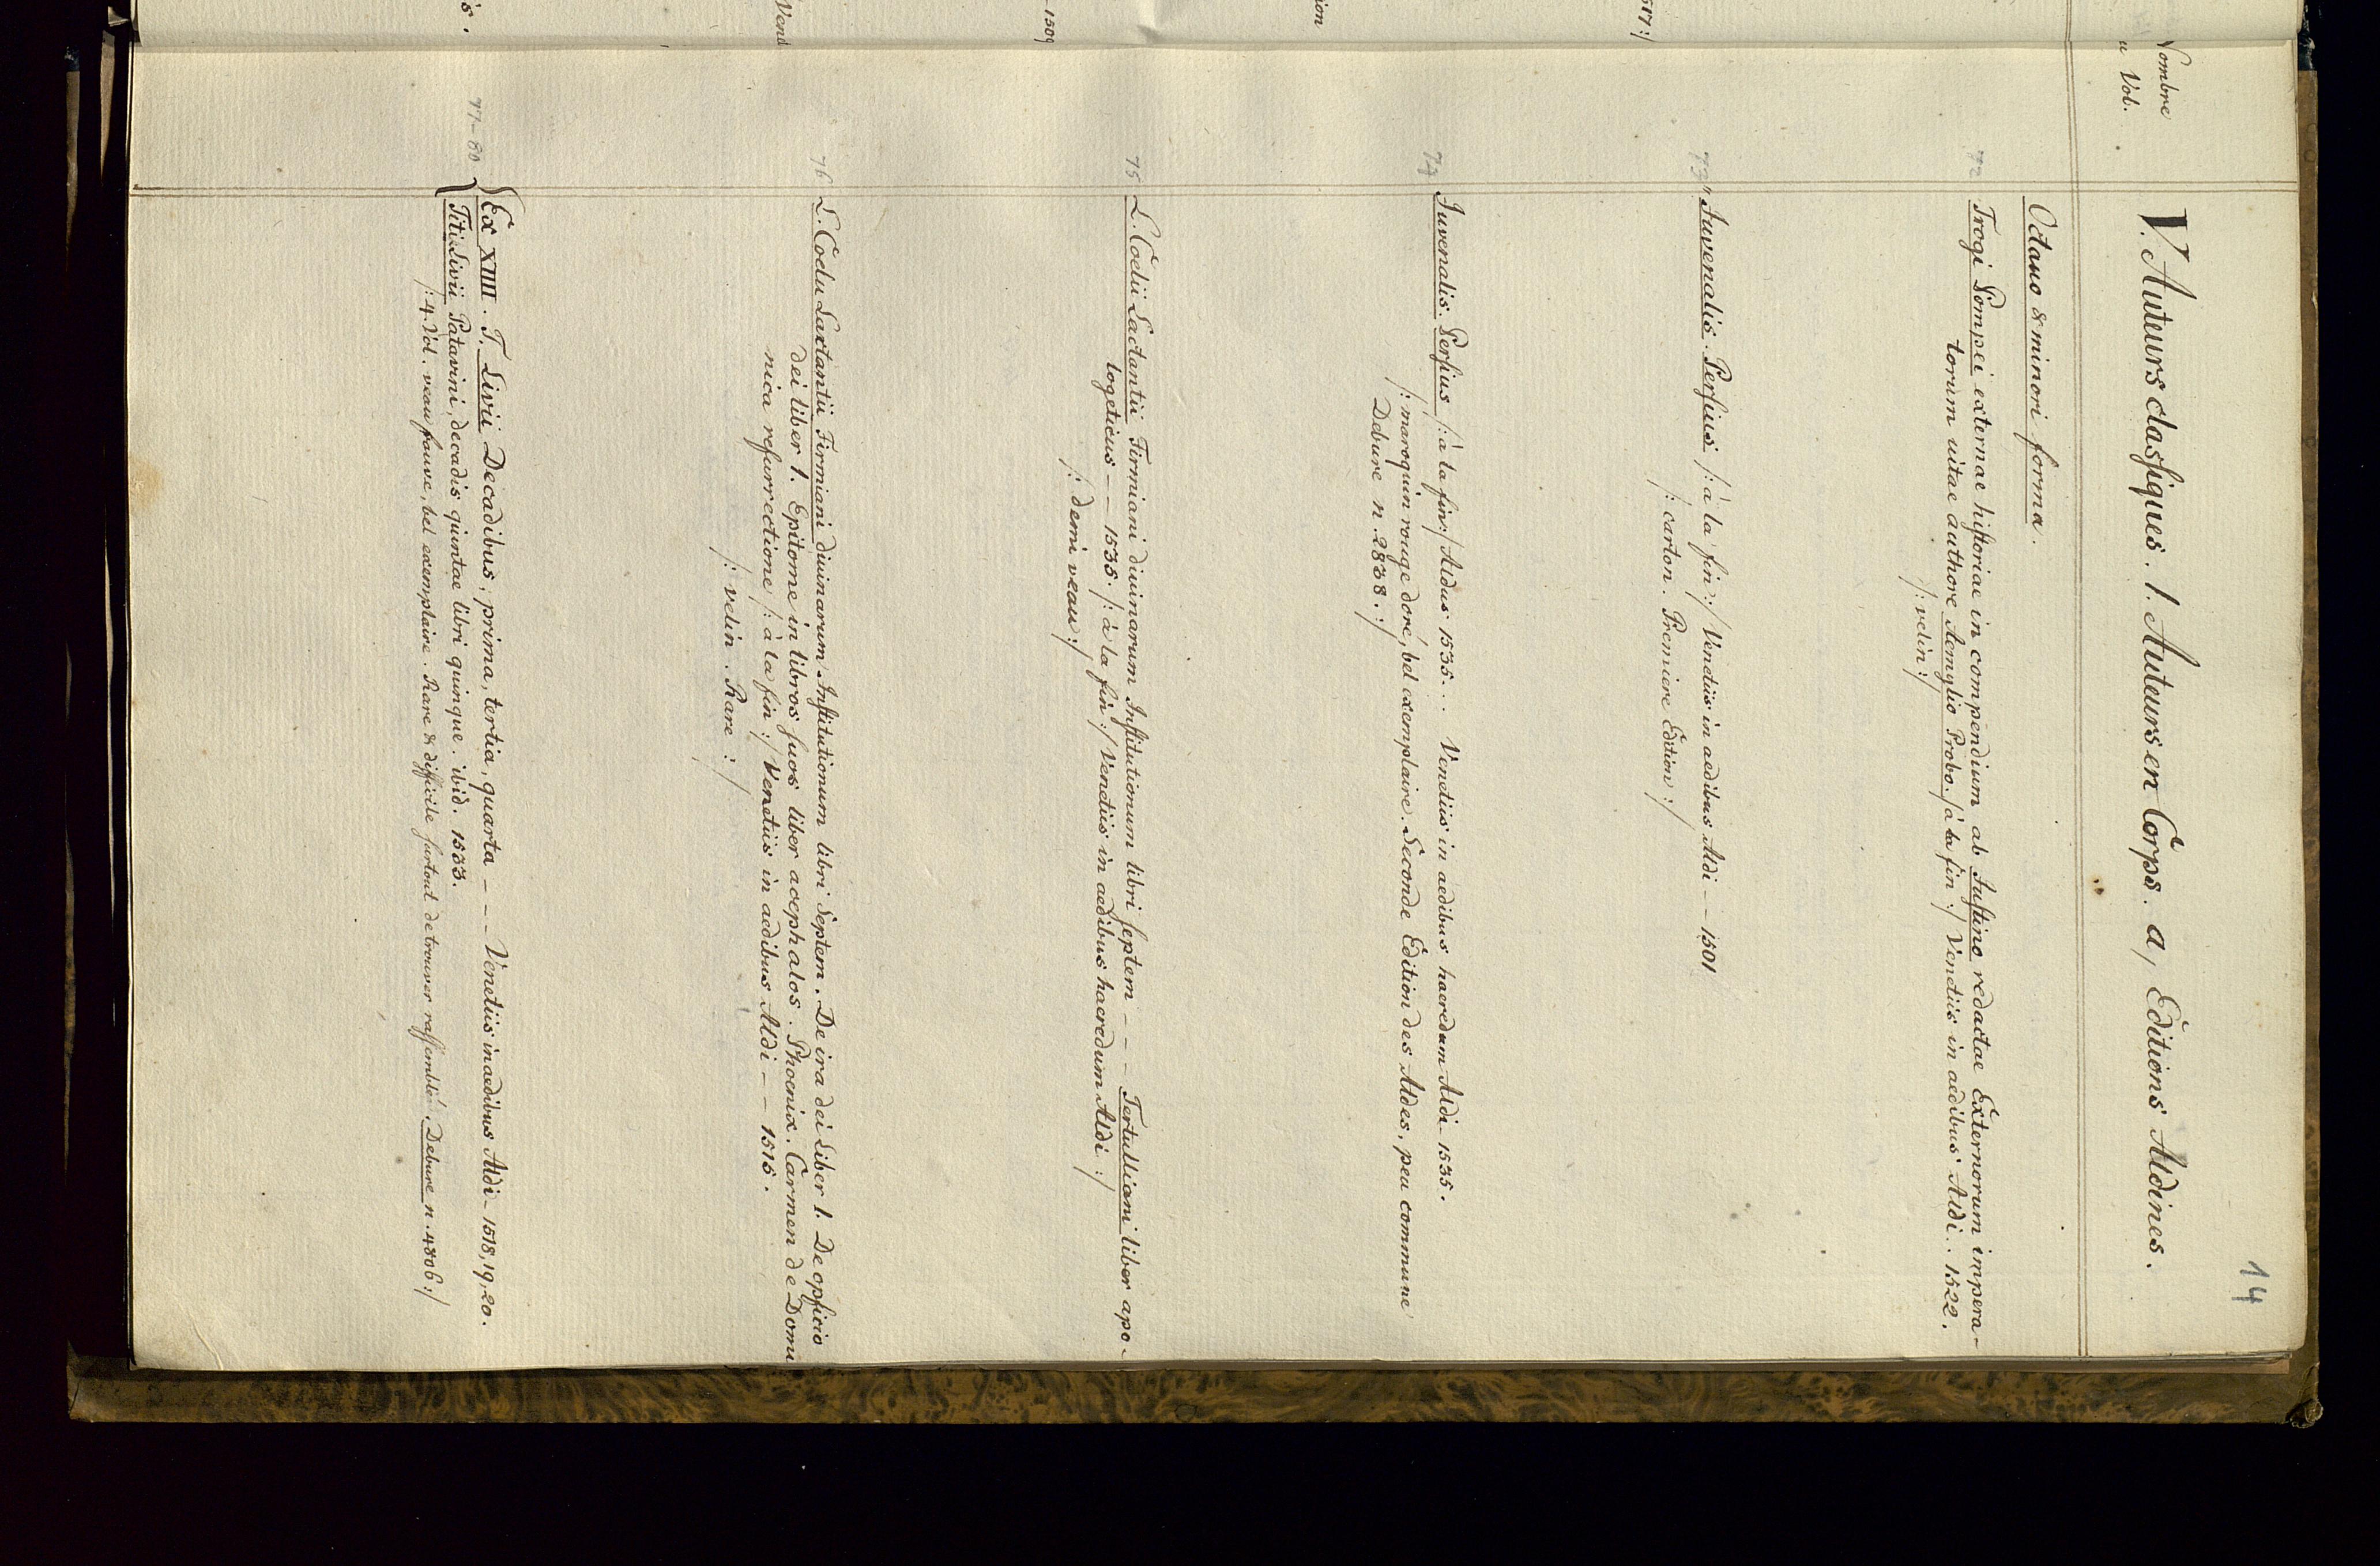 14
Nombre
Vol.
V. Auteurs classiques. 1. Auteurs en Corps. a, Editions Aldines.
Octauo & minori forma.
72 Trogi Pompei externae historiae in compendium ab Justino redactae Externorum impera-
torum uitae authore Aemylio Probo. /: à la fin :/ Venetiis in aedibus Aldi .. 1522.
/: velin :/
73 Juvenalis. Persius /: à la fin :/ Venetiis in aedibus Aldi -- 1501
/: carton. Premiere Edition :/
74 Juvenalis. Persius /: à la fin :/ Aldus. 1535... Venetiis in aedibus haeredum Aldi - 1535.
/: maroquin rouge doré, bel exemplaire. Seconde Edition des Aldes, peu commune
Debure n. 2838. :/
75 L. Coelii Lactantii Firmiani diuinarum Institutionum libri septem --- Tertulliani liber apo-
logeticus --- 1535. /: à la fin :/ Venetiis in aedibus haeredum Aldi :/
/: demi veau :/
76 L. Coelu Lactantii Firmiani diuinarum Institutionum libri Septem. De ira dei Liber 1. De opficio
dei liber 1. Epitome in libros suos liber acephalos. Phoenix. Carmen de Domi
nica resurrectione /: à la fin :/ Venetiis in aedibus Aldi --- 1515.
/: velin. Rare :/
77-80 Ex XIIII. T. Livii Decadibus; prima, tertia, quarta --- Venetiis in aedibus Aldi - 1518, 19, 20.
Titi Livii Patavini, decadis quintae libri quinque. ibid. 1533.
/: 4. Vol. veau fauve, bel exemplaire. Rare & difficile surtout de trouver rassemblé. Debure n. 4806 :/
1509
Vend
s.